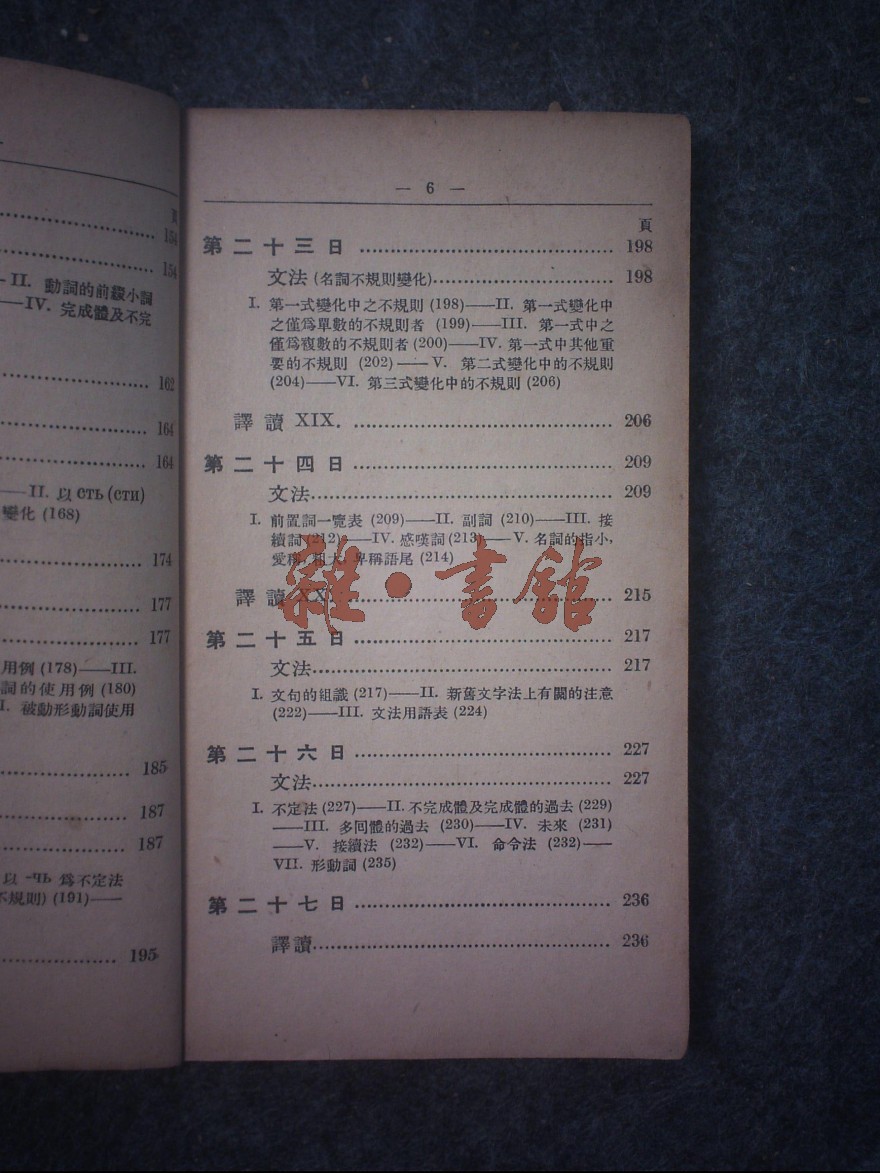 頁
154
154
II. 動詞的前綴小詞
——IV. 完成體及不完
162
164
164
——II. 以 сть (сти)
變化 (168)
174
177
177
用例 (178)——III.
詞的使用例 (180)
I. 被動形動詞使用
185
187
187
以 -чь 爲不定法
不規則) (191)——
195
— 6 —
頁
第二十三日 198
文法 (名詞不規則變化) 198
I. 第一式變化中之不規則 (198)——II. 第一式變化中
之僅爲單數的不規則者 (199)——III. 第一式中之
僅爲複數的不規則者 (200)——IV. 第一式中其他重
要的不規則 (202)——V. 第二式變化中的不規則
(204)——VI. 第三式變化中的不規則 (206)
譯讀 XIX. 206
第二十四日 209
文法 209
I. 前置詞一覽表 (209)——II. 副詞 (210)——III. 接
續詞 (212)——IV. 感嘆詞 (213)——V. 名詞的指小,
愛稱, 粗大, 卑稱語尾 (214)
雜·書館
譯讀 XX. 215
第二十五日 217
文法 217
I. 文句的組識 (217)——II. 新舊文字法上有關的注意
(222)——III. 文法用語表 (224)
第二十六日 227
文法 227
I. 不定法 (227)——II. 不完成體及完成體的過去 (229)
——III. 多囘體的過去 (230)——IV. 未來 (231)
——V. 接續法 (232)——VI. 命令法 (232)——
VII. 形動詞 (235)
第二十七日 236
譯讀 236